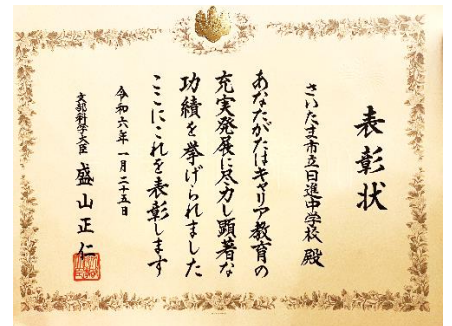 表彰状
さいたま市立日進中学校 殿
あなたがたはキャリア教育の
充実発展に尽力し顕著な
功績を挙げられました
ここにこれを表彰します
令和六年一月二十五日
文部科学大臣 盛山正仁